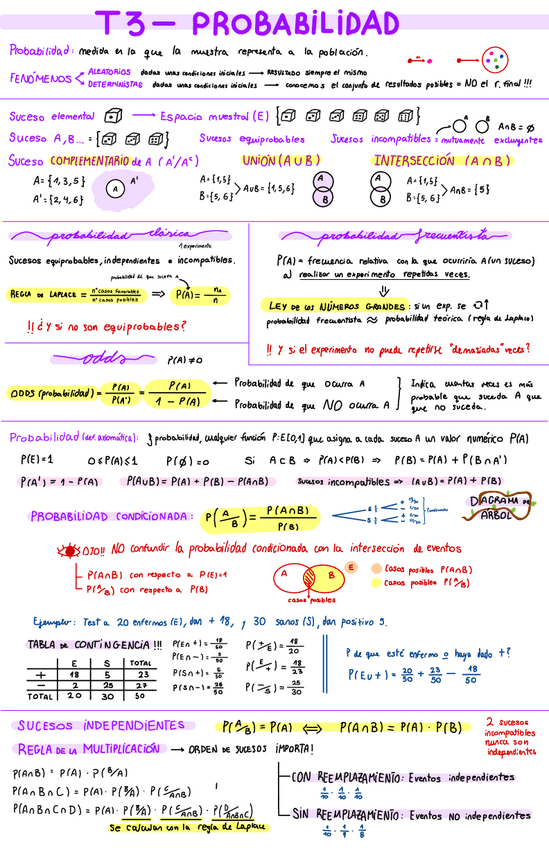 T3 — PROBABILIDAD
Probabilidad: medida en la que la muestra representa a la población.
FENÓMENOS
ALEATORIOS dadas unas condiciones iniciales → RESULTADO siempre el mismo
DETERMINISTAS dadas unas condiciones iniciales → conocemos el conjunto de resultados posibles = NO el r. final !!!
Suceso elemental → Espacio muestral (E)
Suceso A, B... = Sucesos equiprobables Sucesos incompatibles = mutuamente excluyentes A∩B = Ø
Suceso COMPLEMENTARIO de A (A'/Aᶜ) UNIÓN (A∪B) INTERSECCIÓN (A∩B)
A = {1, 3, 5}
A' = {2, 4, 6}
A A'
A = {1,5}
B = {5, 6}
A∪B = {1, 5, 6}
A
B
A = {1,5}
B = {5, 6}
A∩B = {5}
A
B
probabilidad clásica
1 experimento
Sucesos equiprobables, independientes e incompatibles.
probabilidad de que suceda A
REGLA DE LAPLACE = nº casos favorables / nº casos posibles ⇒ P(A) = nA / n
!! ¿Y si no son equiprobables?
probabilidad frecuentista
P(A) = frecuencia relativa con la que ocurriría A (un suceso)
al realizar un experimento repetidas veces.
LEY DE LOS NÚMEROS GRANDES: si un exp. se ↻↑
probabilidad frecuentista ≈ probabilidad teórica (regla de Laplace)
!! Y si el experimento no puede repetirse "demasiadas" veces?
odds P(A) ≠ 0
ODDS (probabilidad) = P(A) / P(A') = P(A) / 1 - P(A)
← Probabilidad de que ocurra A
← Probabilidad de que NO ocurra A
Indica cuántas veces es más
probable que suceda A que
que no suceda.
Probabilidad (def. axiomática): } probabilidad, cualquier función P: E[0,1] que asigna a cada suceso A un valor numérico P(A)
P(E) = 1 0 ≤ P(A) ≤ 1 P(Ø) = 0 Si A ⊂ B ⇒ P(A) < P(B) ⇒ P(B) = P(A) + P(B∩A')
P(A') = 1 - P(A) P(A∪B) = P(A) + P(B) - P(A∩B) Sucesos incompatibles ⇒ (A∪B) = P(A) + P(B)
PROBABILIDAD CONDICIONADA: P(A/B) = P(A∩B) / P(B)
DIAGRAMA DE
ÁRBOL
OJO!! NO confundir la probabilidad condicionada con la intersección de eventos
P(A∩B) con respecto a P(E)=1
P(A/B) con respecto a P(B)
A B E
casos posibles
Casos posibles P(A∩B)
Casos posibles P(A/B)
Ejemplo: Test a 20 enfermos (E), dan + 18, y 30 sanos (S), dan positivo 5.
TABLA DE CONTINGENCIA !!!
E S TOTAL
+ 18 5 23
- 2 25 27
TOTAL 20 30 50
P(E∩+) = 18/50
P(E∩-) = 2/50
P(S∩+) = 5/50
P(S∩-) = 25/50
P(+/E) = 18/20
P(E/+) = 18/23
P(-/S) = 25/30
P de que esté enfermo o haya dado +?
P(E∪+) = 20/50 + 23/50 - 18/50
SUCESOS INDEPENDIENTES P(A/B) = P(A) ⇔ P(A∩B) = P(A) · P(B)
2 sucesos
incompatibles
nunca son
independientes
REGLA DE LA MULTIPLICACIÓN → ORDEN DE SUCESOS IMPORTA!
P(A∩B) = P(A) · P(B/A)
P(A∩B∩C) = P(A) · P(B/A) · P(C/A∩B)
P(A∩B∩C∩D) = P(A) · P(B/A) · P(C/A∩B) · P(D/A∩B∩C)
Se calculan con la regla de Laplace
CON REEMPLAZAMIENTO: Eventos independientes
1/10 · 1/10 · 1/10
SIN REEMPLAZAMIENTO: Eventos NO independientes
1/10 · 1/9 · 1/8